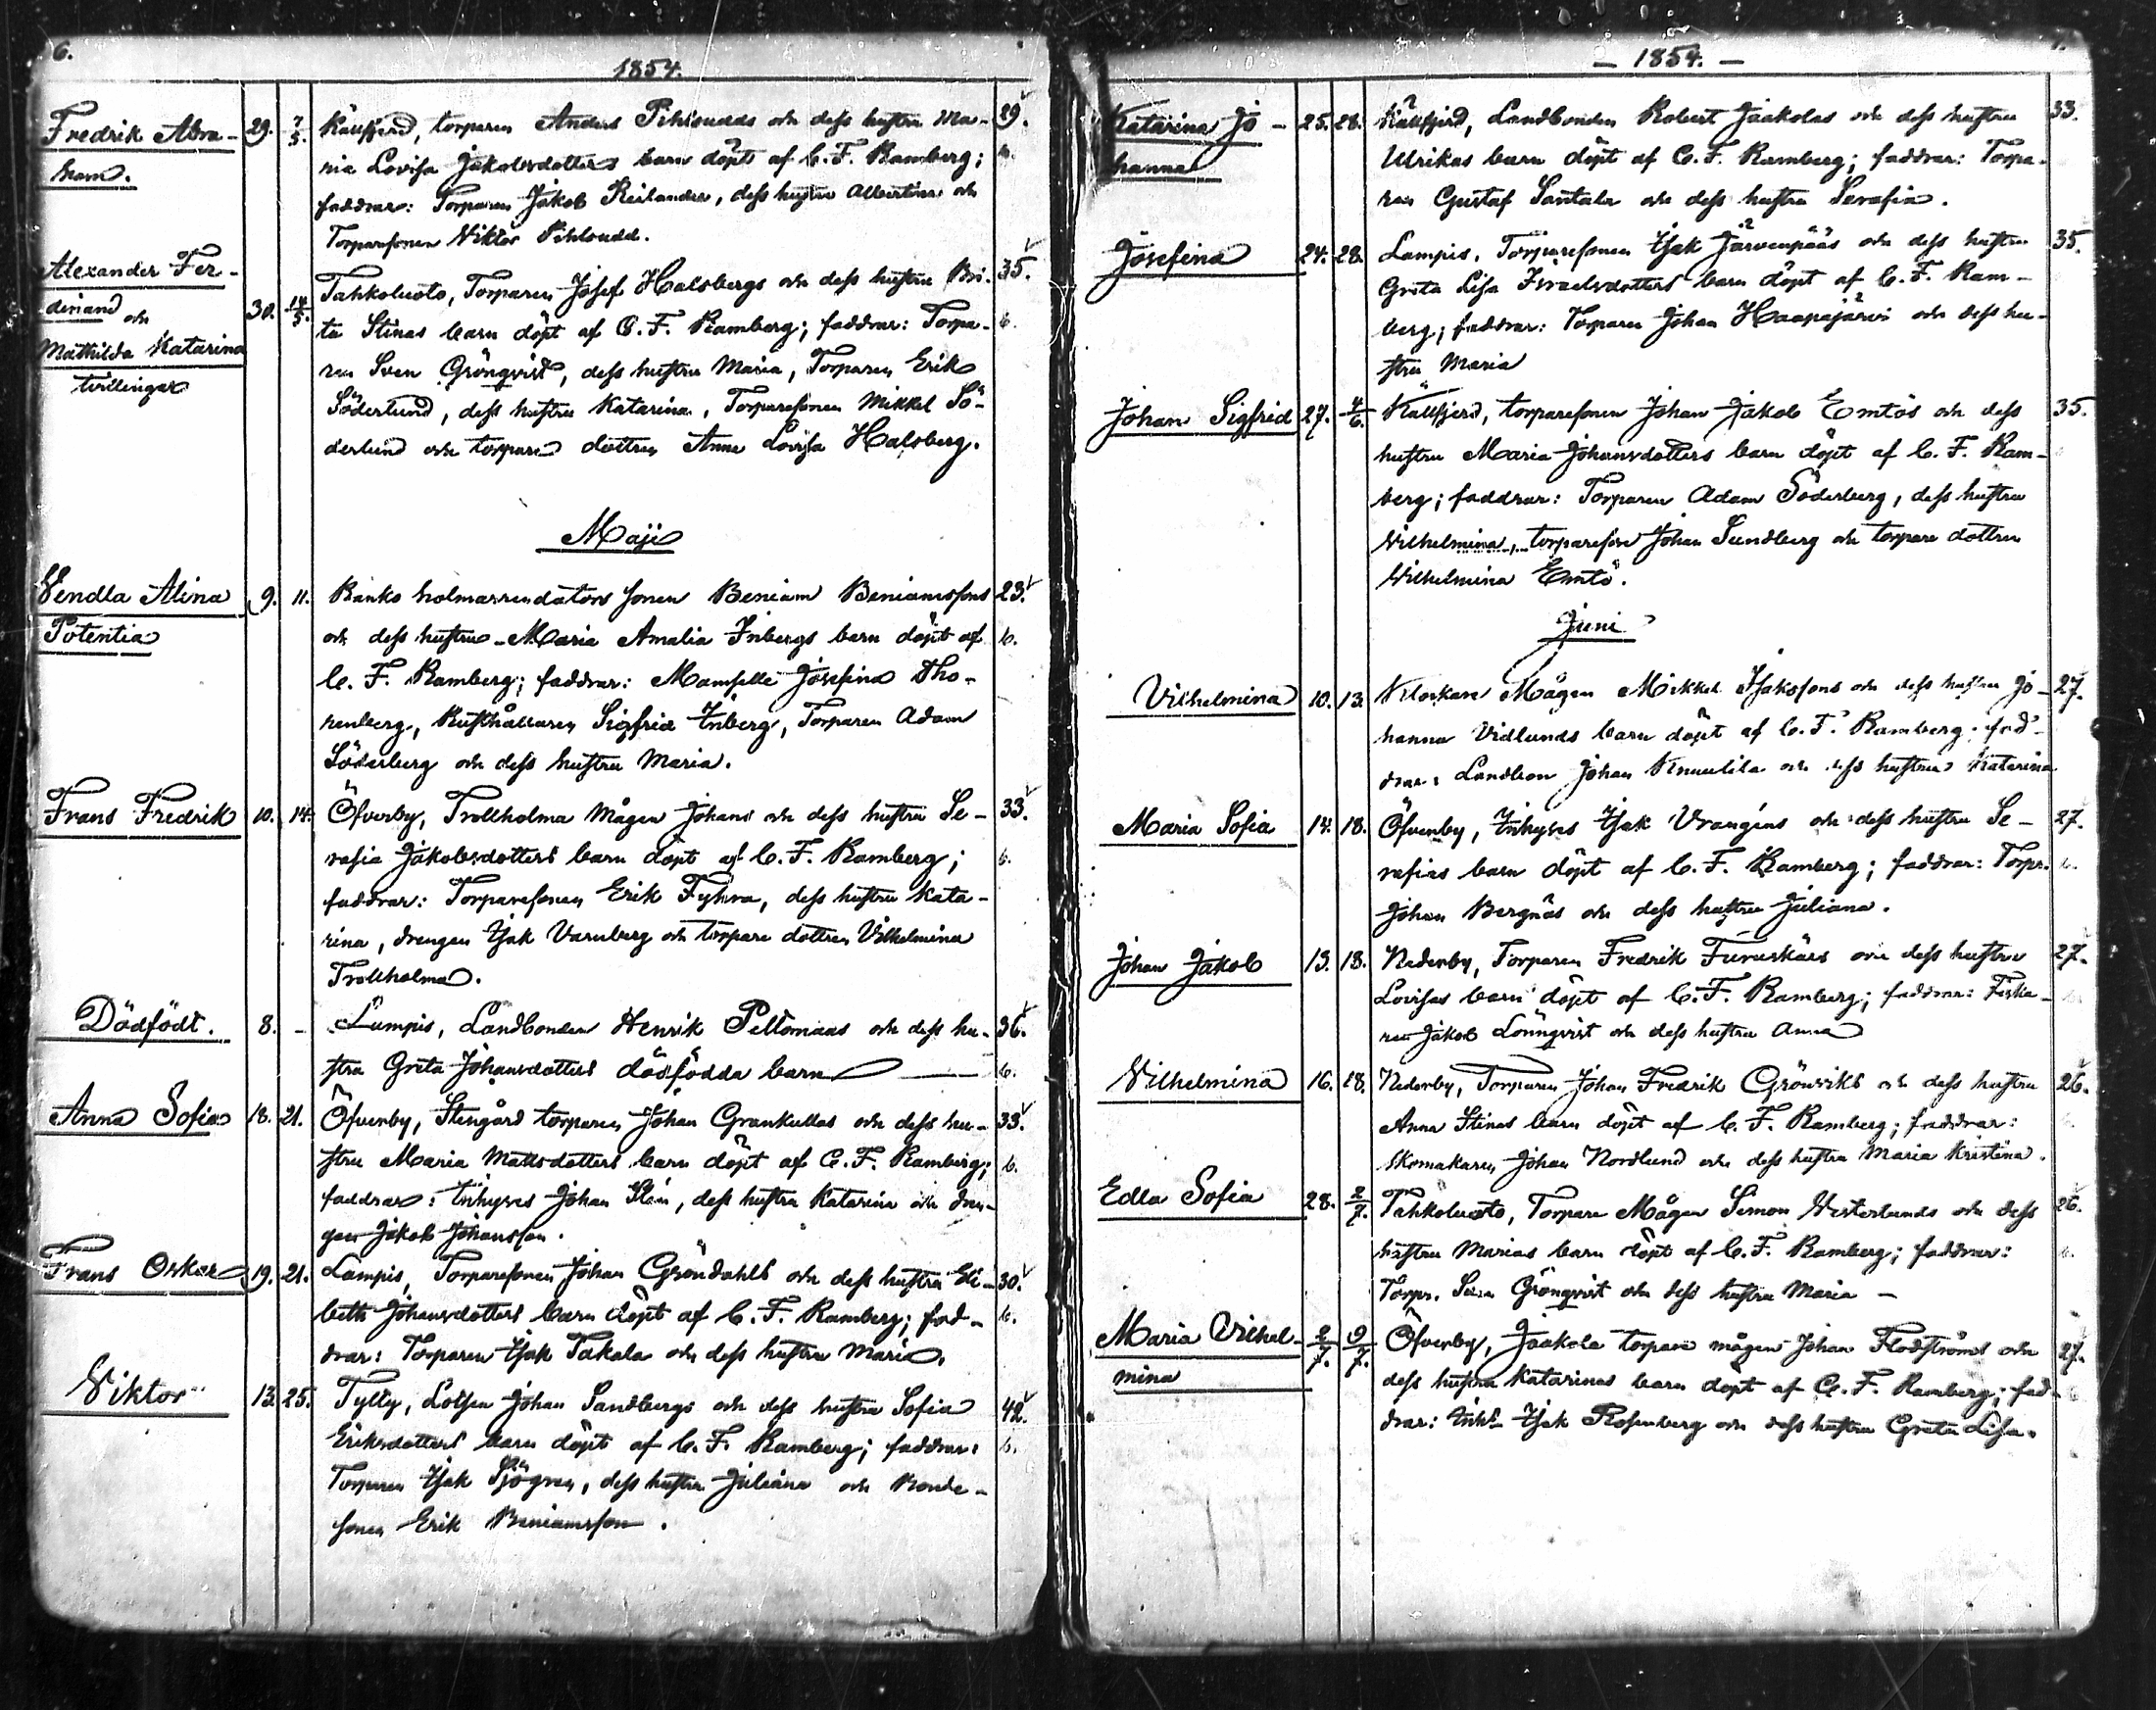 6.
1854.
Fredrik Abra- 29. 7/5. Källfjerd, torparen Anders Pihlsudds och dess hustru Ma- 29.
ham. ria Lovisa Jakobsdotters barn döpt af C. F. Ramberg; b.
faddrar: Torparen Jakob Reilander, dess hustru Albertina och
Torparesonen Viktor Pihlsudd.
Alexander Fer- Tahkoluoto, Torparen Josef Halsbergs och dess hustru Bri- 35.
dinand och 30. 14/5. ta Stinas barn döpt af C. F. Ramberg; faddrar: Torpa- b.
Mathilda Katarina ren Sven Grönqvist, dess hustru Maria, Torparen Erik
tvillingar Söderlund, dess hustru Katarina, Torparesonen Mikkel Sö-
derlund och torpare dottren Anna Lovisa Halsberg.
Maji
Vendla Alina 9. 11. Ranks holmarrendators sonen Beniam Beniamssons 23.
Potentia och dess hustru Maria Amalia Inbergs barn döpt af b.
C. F. Ramberg; faddrar: Mamselle Josefina Tho-
renberg, Rusthållaren Sigfrid Inberg, Torparen Adam
Söderberg och dess hustru Maria.
Frans Fredrik 10. 14. Öfverby, Trollholma Mågen Johans och dess hustru Se- 33.
rafia Jakobsdotters barn döpt af C. F. Ramberg; b.
faddrar: Torparesonen Erik Fyhra, dess hustru Kata-
rina, drengen Isak Varnberg och torpare dottren Vilhelmina
Trollholma.
Dödfödt. 8. - Lampis, Landbonden Henrik Peltomaas och dess hu- 36.
stru Greta Johansdotters dödfödda barn b.
Anna Sofia 18. 21. Öfverby, Stengård torparen Johan Grankullas och dess hu- 33.
stru Maria Mattsdotters barn döpt af C. F. Ramberg; b.
faddrar: Inhyses Johan Sten, dess hustru Katarina och dren-
gen Jakob Johansson.
Frans Oskar 19. 21. Lampis, Torparesonen Johan Gröndahls och dess hustru Eli- 30.
beth Johansdotters barn döpt af C. F. Ramberg; fad- b.
drar: Torparen Isak Takala och dess hustru Maria.
Viktor 13. 25. Tylty, Lotsen Johan Sandbergs och dess hustru Sofia 42.
Eriksdotters barn döpt af C. F. Ramberg; faddrar: b.
Torparen Isak Sjögren, dess hustru Juliana och Bonde-
sonen Erik Beniamsson.
7.
- 1854. -
Katarina Jo- 25. 28. Källfjerd, Landbonden Robert Jaakolas och dess hustru 33.
hanna Ulrikas barn döpt af C. F. Ramberg; faddrar: Torpa-
ren Gustaf Santala och dess hustru Serafia.
Josefina 24. 28. Lampis, Torparesonen Isak Järvenpääs och dess hustru 35.
Greta Lisa Israelsdotters barn döpt af C. F. Ram-
berg; faddrar: Torparen Johan Haapajärvi och dess hu-
stru Maria
Johan Sigfrid 27. 4/6. Källfjerd, torparesonen Johan Jakob Emtös och dess 35.
hustru Maria Johansdotters barn döpt af C. F. Ram-
berg; faddrar: Torparen Adam Söderberg, dess hustru
Vilhelmina, torparesone Johan Sundberg och torpare dottren
Vilhelmina Emtö.
Juni
Vilhelmina 10. 13. Klockare Mågen Mikkel Isaksons och dess hustru Jo- 27.
hanna Vidlunds barn döpt af C. F. Ramberg; fad-
drar: Landbon Johan Knuutila och dess hustru Katarina
Maria Sofia 14. 18. Öfverby, Inhyses Isak Vrangéns och dess hustru Se- 27.
rafias barn döpt af C. F. Ramberg; faddrar: Torpr. b.
Johan Bergnäs och dess hustru Juliana.
Johan Jakob 13. 18. Nederby, Torparen Fredrik Furuskärs och dess hustru 27.
Lovisas barn döpt af C. F. Ramberg; faddrar: Fiska-
ren Jakob Lönnqvist och dess hustru Anna
Vilhelmina 16. 18. Nederby, Torparen Johan Fredrik Grönviks och dess hustru 26.
Anna Stinas barn döpt af C. F. Ramberg; faddrar:
Skomakaren Johan Nordlund och dess hustru Maria Kristina.
Edla Sofia 28. 2/7. Tahkoluoto, Torpare Mågen Simon Vesterlunds och dess 26.
hustru Marias barn döpt af C. F. Ramberg; faddrar: b.
Torpr. Sven Grönqvist och dess hustru Maria -
Maria Vilhel- 2/7. 9/7. Öfverby, Jaakola torpare mågen Johan Flodströms och 27.
mina dess hustru Katarinas barn döpt af C. F. Ramberg; fad-
drar: Inhs Isak Rosenberg och dess hustru Greta Lisa.